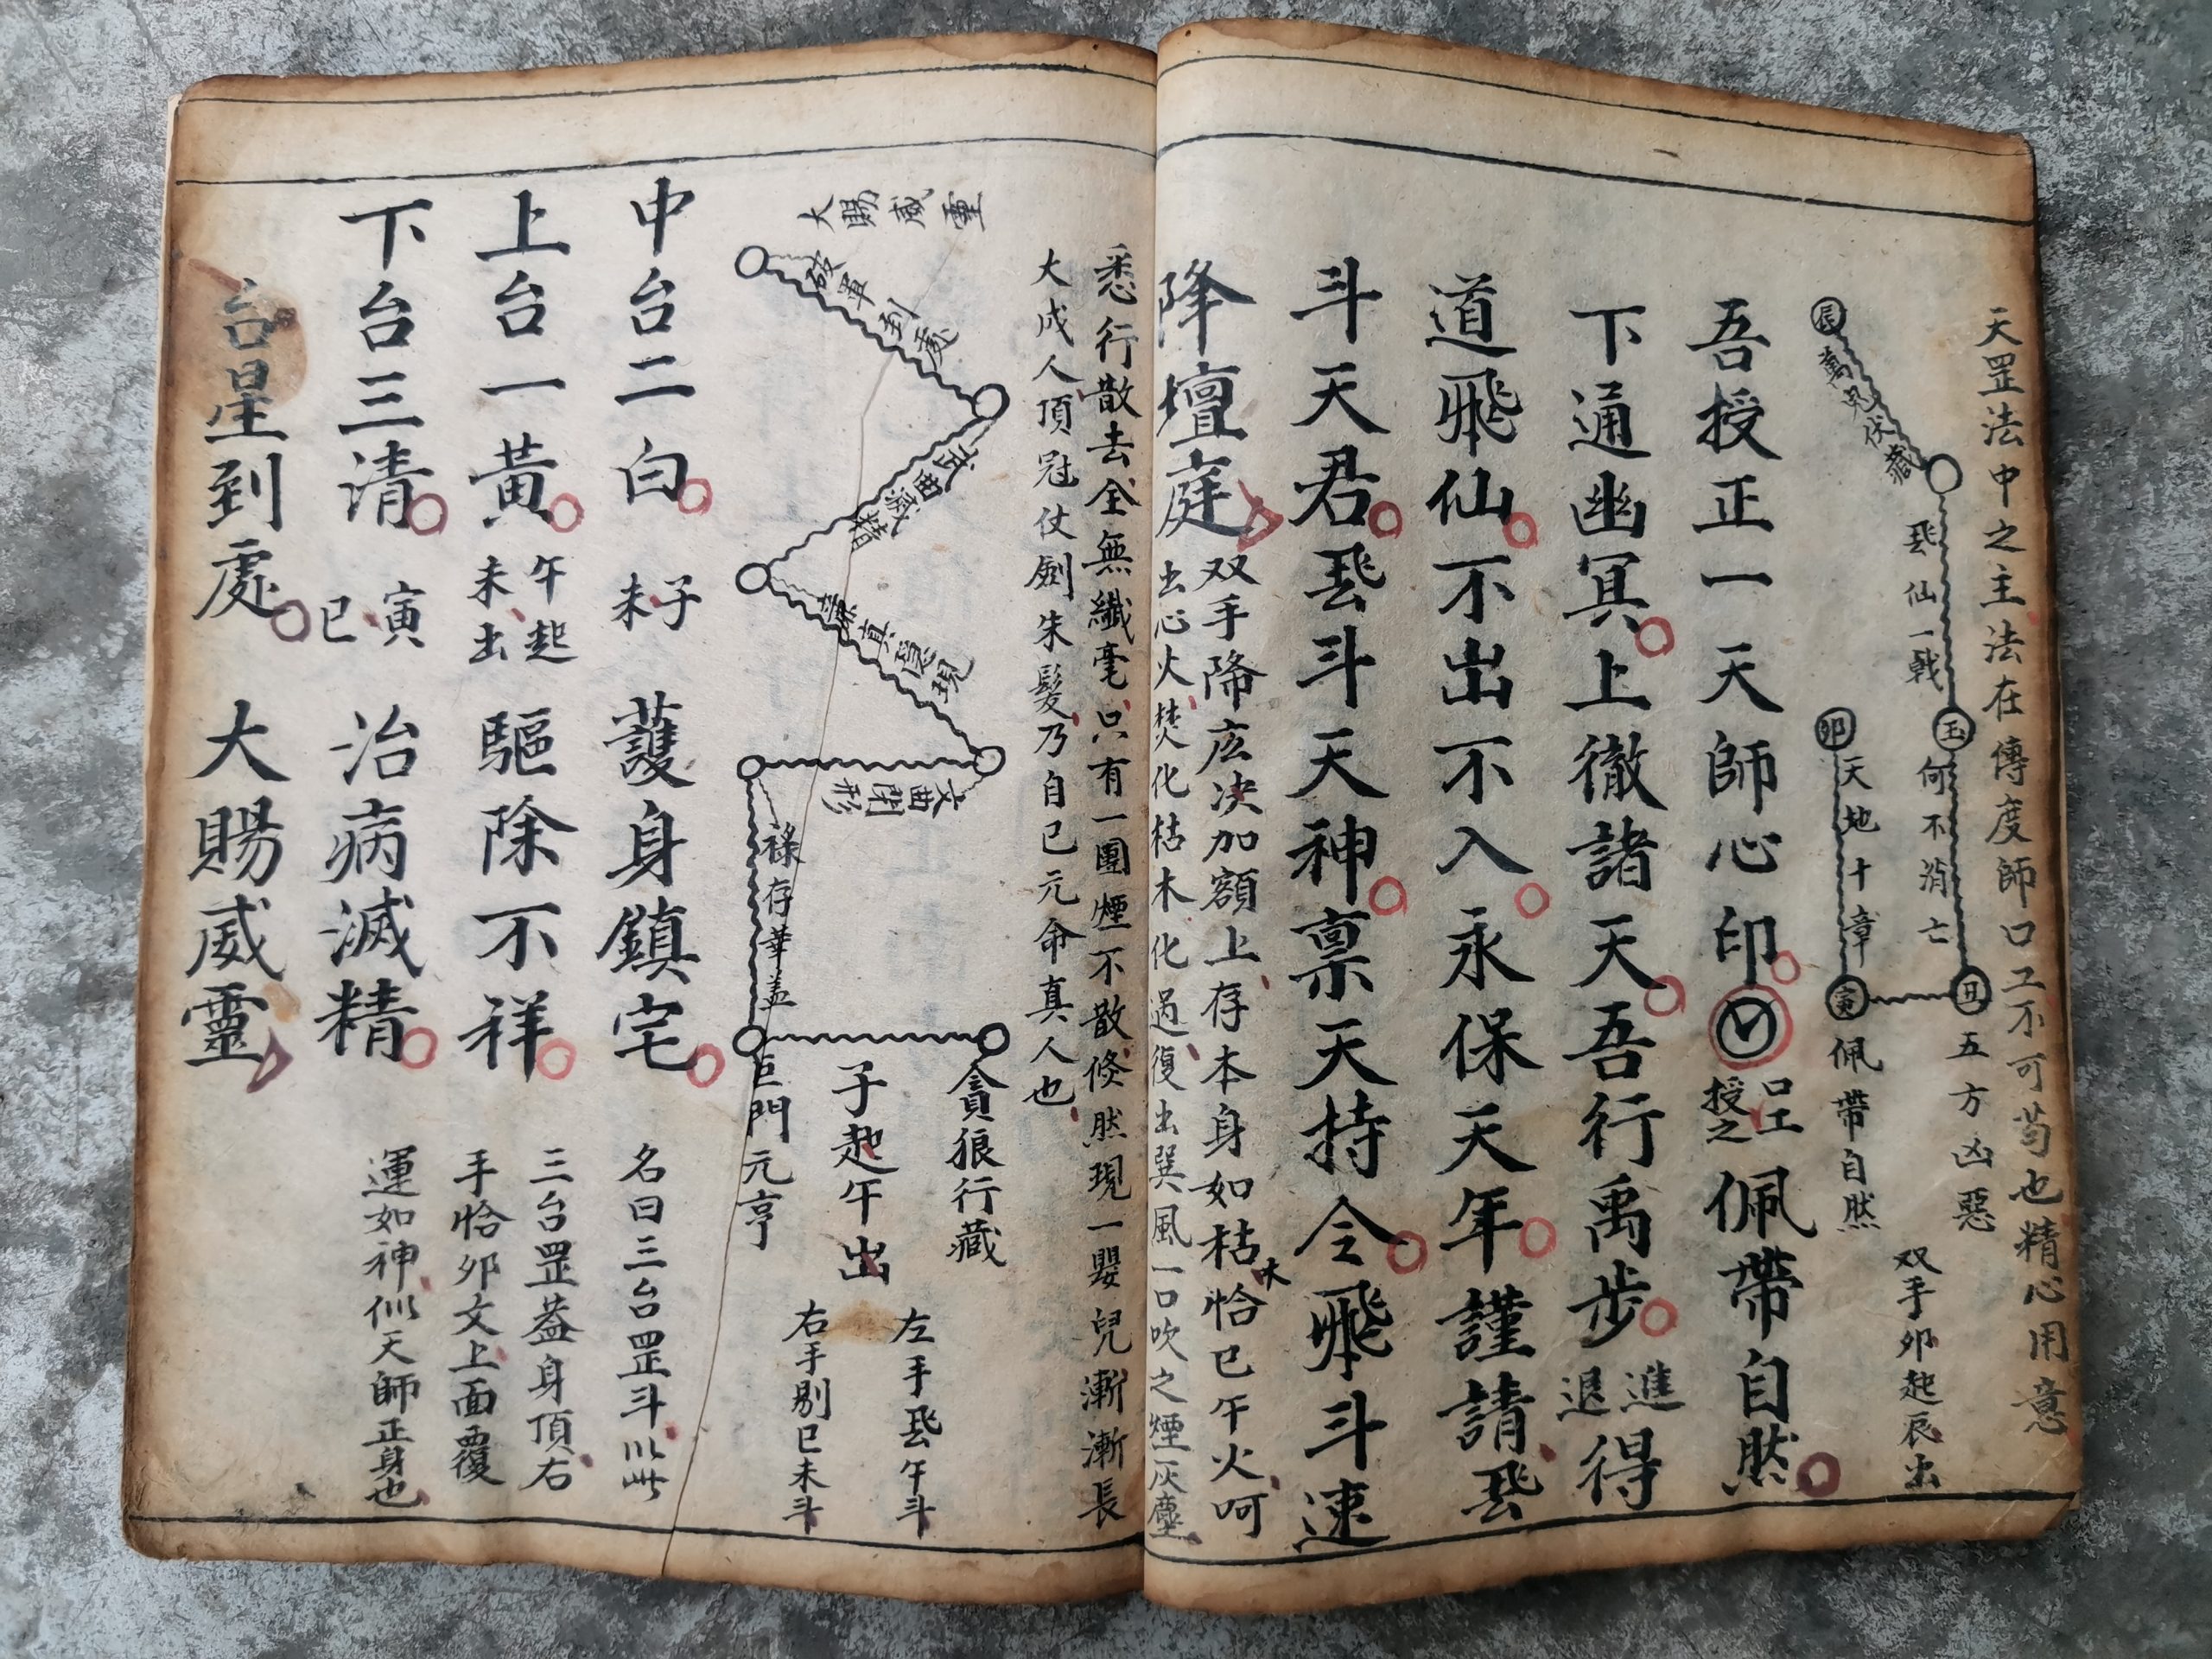 天罡法中之主法在傳度師口工不可苟也精心用意
辰
萬鬼伏藏
飛仙一戟
玉
何不消亡
丑
五方凶惡
卯
天地十章
寅
佩帶自然
双手卯起辰出
吾授正一天師心印
口工
授之
佩帶自然
下通幽冥上徹諸天吾行禹步
進
退
得
道飛仙不出不入永保天年謹請飛
斗天君飛斗天神禀天持令飛斗速
降壇庭
双手降庅决加額上存本身如枯木恰巳午火呵
出心火焚化枯木化過復出巽風一口吹之煙灰塵
悉行散去全無纖毫只有一團煙不散倏然現一嬰兒漸漸長
大成人頂冠仗劍朱髮乃自已元命真人也
大賜威靈
破軍到處
武曲滅精
廉貞隱現
文曲閉形
祿存華盖
巨門元亨
貪狼行藏
子起午出
左手飛午斗
右手剔巳未斗
中台二白
子
未
護身鎮宅
名曰三台罡斗以此
上台一黃
午起
未出
驅除不祥
三台罡葢身頂右
手恰卯文上面覆
下台三清
寅
巳
治病滅精
運如神似天師正身也
台星到處
大賜威靈